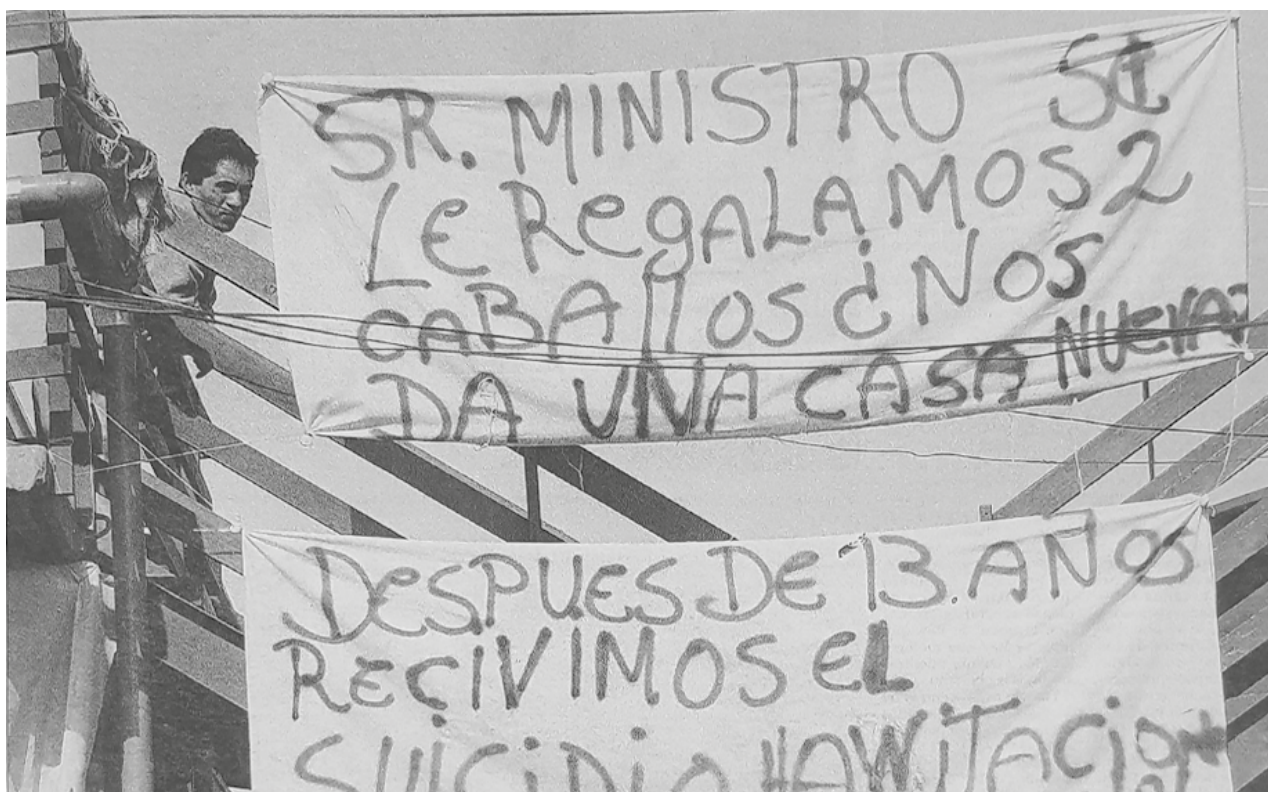 SR. MINISTRO Si
Le RegALAMOS 2
CABAllOS ¿NOS
DA UNA CASA NUEVA?
DesPUES DE 13. AÑOS
RECIVIMOS EL
SUiCiDiO HAWiTACiON